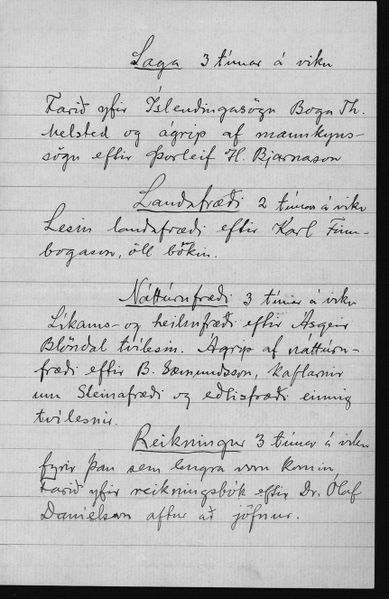 Saga 3 tímar á viku
Farið yfir Íslendingasögu Boga Th.
Melsted og ágrip af mannkyns-
sögu eftir Þorleif H. Bjarnason
Landafræði 2 tímar á viku
Lesin landafræði eftir Karl Finn-
bogason, öll bókin.
Náttúrufræði 3 tímar á viku
Líkams- og heilsufræði eftir Ásgeir
Blöndal tvílesin. Ágrip af náttúru-
fræði eftir B. Sæmundsson, kaflarnir
um Steinafræði og eðlisfræði einnig
tvílesnir.
Reikningur 3 tímar á viku
fyrir þau sem lengra voru komin,
Farið yfir reikningsbók eftir Dr. Ólaf
Daníelsson aftur að jöfnur.